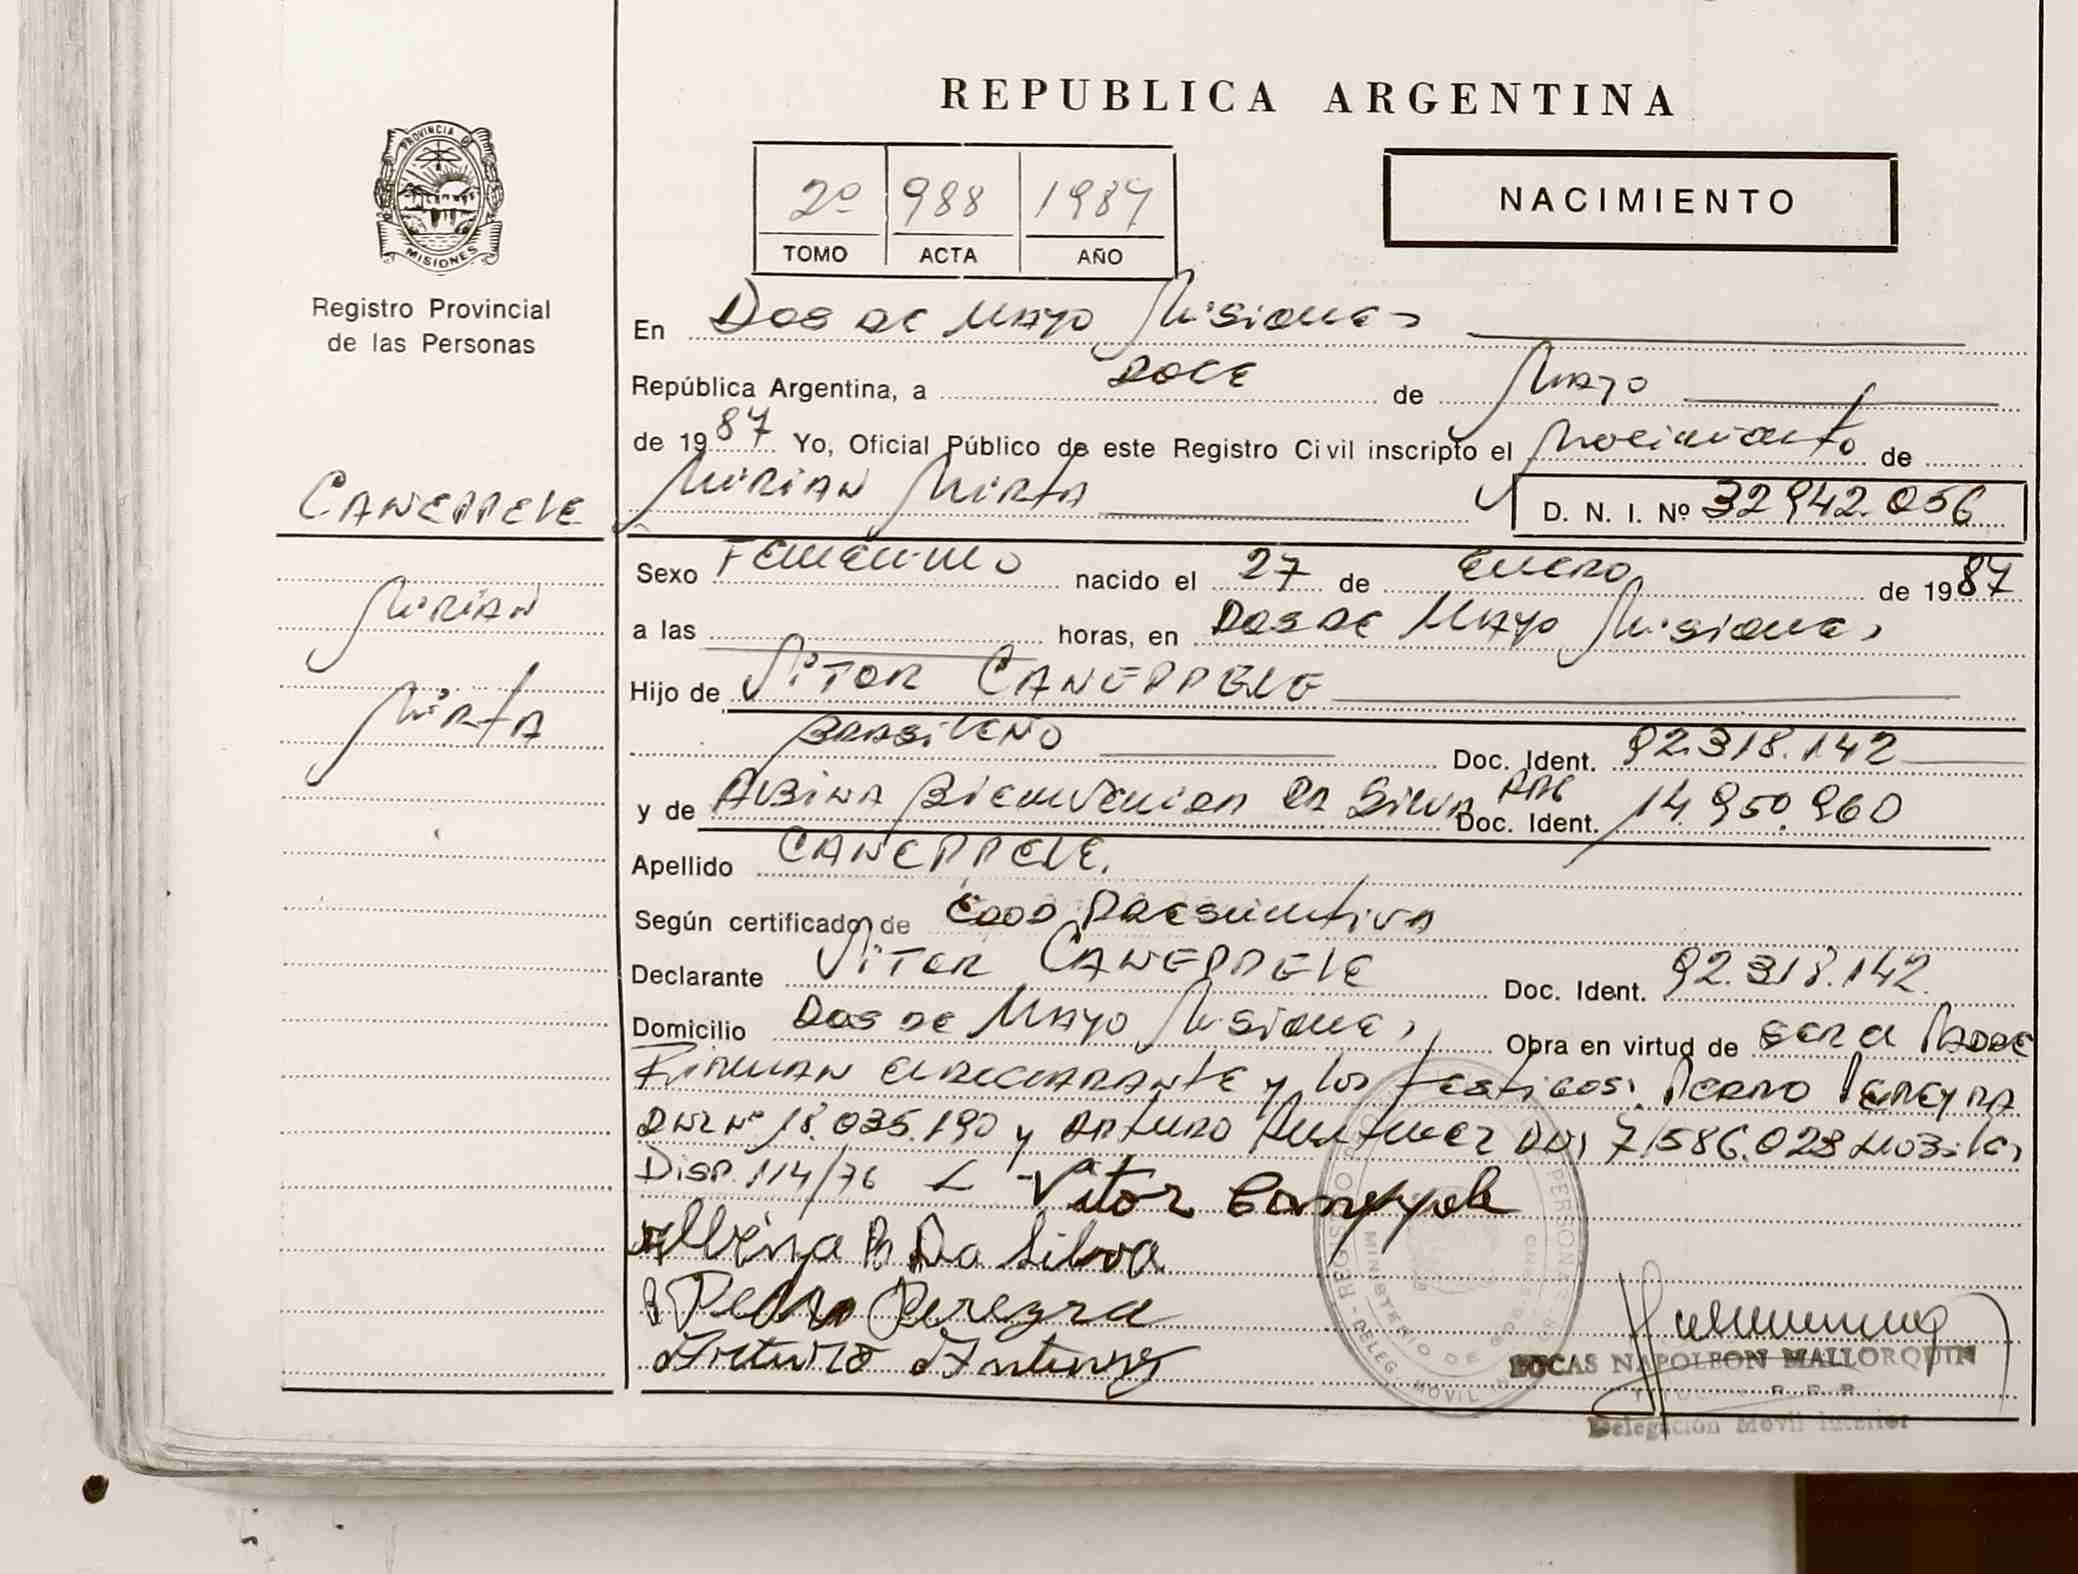 REPUBLICA ARGENTINA
PROVINCIA DE
MISIONES
Registro Provincial
de las Personas
2º 988 1987
TOMO ACTA AÑO
NACIMIENTO
En Dos de Mayo Misiones
República Argentina, a DOCE de Mayo
de 1987 Yo, Oficial Público de este Registro Civil inscripto el Nacimiento de
CANEPPELE
Mirian Mirta D. N. I. Nº 32942.056
Sexo Femenino nacido el 27 de Enero de 1987
Mirian
a las horas, en Dos de Mayo Misiones
Hijo de Vitor CANEPPELE
Mirta
Brasileño Doc. Ident. 92.318.142
y de Albina Bienvenida Da Silva Arg Doc. Ident. 14.950.960
Apellido CANEPPELE.
Según certificado de Edad Presuntiva
Declarante Vitor CANEPPELE Doc. Ident. 92.318.142
Domicilio Dos de Mayo Misiones, Obra en virtud de ser el Padre
Firman el declarante y los testigos: Pedro Pereyra
DNI Nº 18.035.190 y Arturo Antunez DNI 7.586.028
Disp. 114/76 Vitor Caneppele
Albina B Da Silva
Pedro Pereyra
Arturo Antunez
LUCAS NAPOLEON MALLORQUIN
Delegación Movil Interior